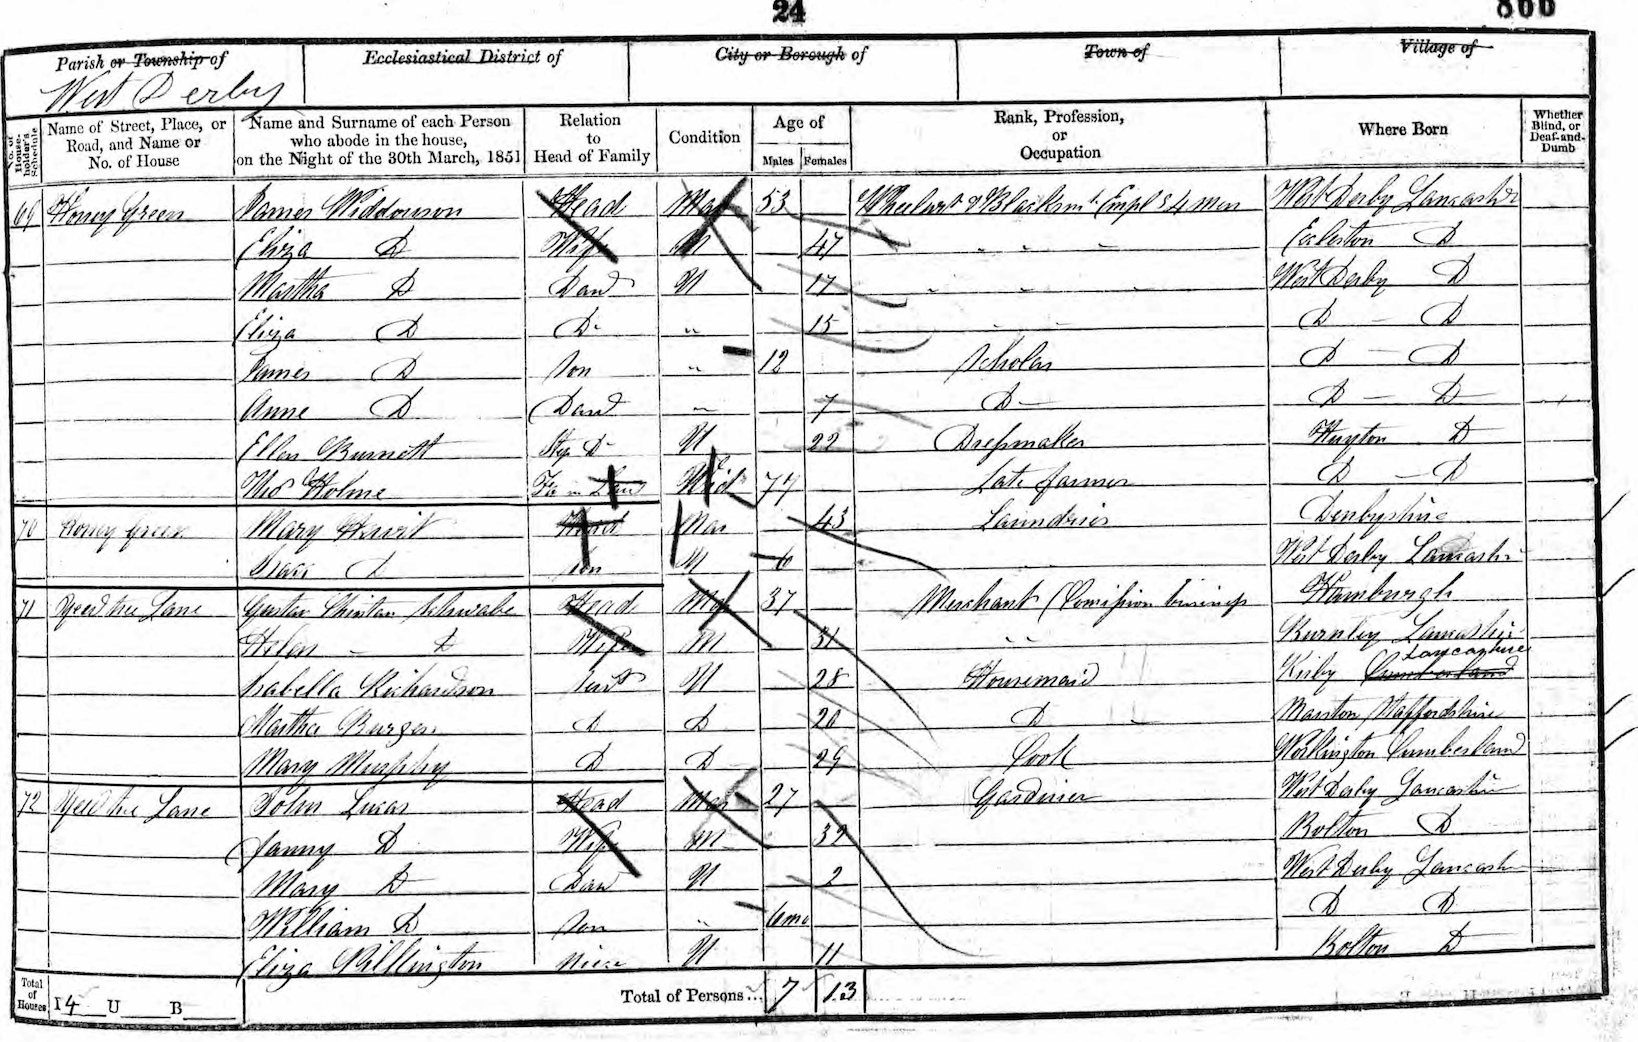 24
866
Parish or Township of
West Derby
Ecclesiastical District of
City or Borough of
Town of
Village of
No. of House-holder's Schedule
Name of Street, Place, or Road, and Name or No. of House
Name and Surname of each Person who abode in the house, on the Night of the 30th March, 1851
Relation to Head of Family
Condition
Age of
Males
Females
Rank, Profession, or Occupation
Where Born
Whether Blind, or Deaf-and-Dumb
69 Honey Green James Widdowson Head Mar 53 Wheelwrt & Blacksmt Empl 4 men West Derby Lancash
Eliza D Wife M 47 " " " Eccleston D
Martha D Daur U 17 " " " West Derby D
Eliza D D " 15 " " D D
James D Son " 12 Scholar D D
Anne D Daur " 7 D D D
Ellen Burnett Step D U 22 Dressmaker Huyton D
Thos Holme Fa in Law Wid 77 Late farmer D D
70 Honey Green Mary Head Mar 43 Laundress Denbyshire
Isaac D Son U 6 West Derby Lancash
71 Yewtree Lane Gustav Schwabe Head Mar 37 Merchant Comission business Hamburgh
Helen D Wife M 31 " Burnley Lancashire
Isabella Richardson Servt U 28 Housemaid Kirby Cumberland Lancashire
Martha Burges D D 20 D Marston Staffordshire
Mary Murphy D D 29 Cook Workington Cumberland
72 Yewtree Lane John Lucas Head Mar 27 Gardinier West Derby Lancashire
Fanny D Wife M 32 Bolton D
Mary D Daur U 2 West Derby Lancash
William D Son " 6mo D D
Eliza Niece U 11 Bolton D
Total of Houses I 4 U B Total of Persons... 7 13